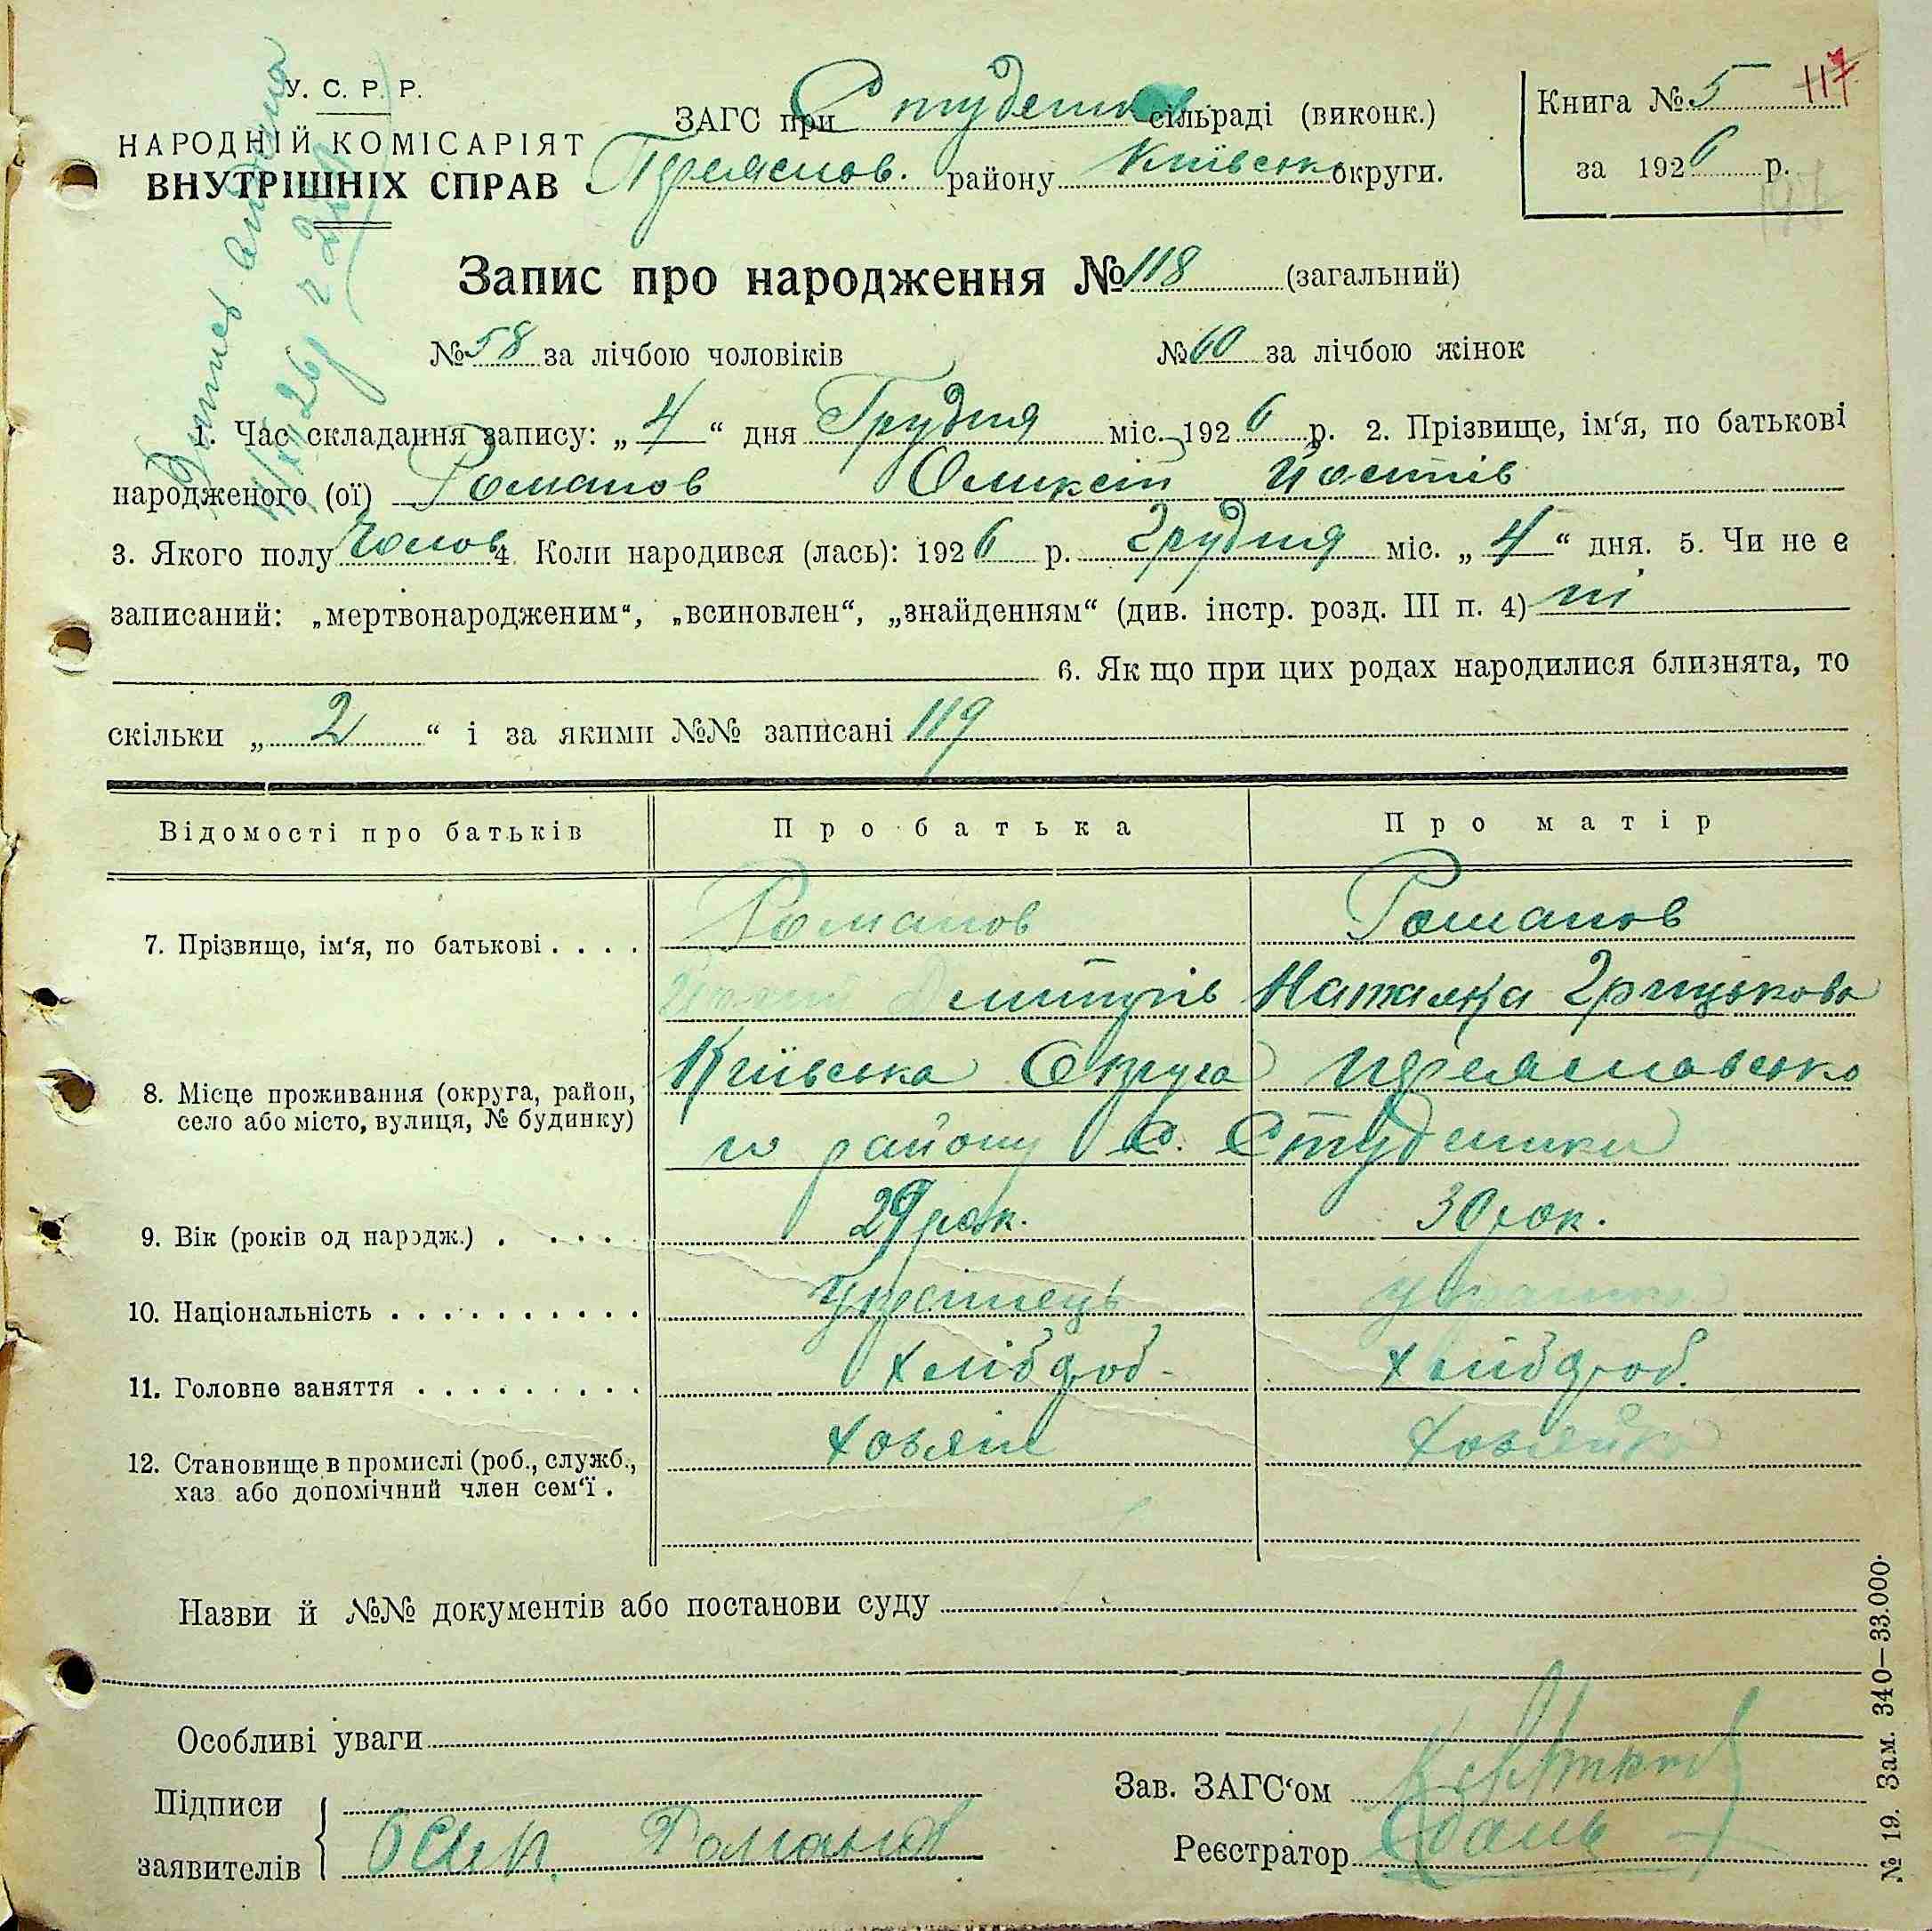 У. С. Р. Р.
НАРОДНІЙ КОМІСАРІЯТ
ВНУТРІШНІХ СПРАВ
ЗАГС при Студеник сільраді (виконк.)
Переяслов. району Київсько округи.
Книга № 5 117
за 1926 р.
4/XII 26 р
Запис про народження № 118 (загальний)
№ 58 за лічбою чоловіків № 60 за лічбою жінок
1. Час складання запису: „ 4 “ дня Грудня міс. 1926 р. 2. Прізвище, ім‘я, по батькові
народженого (ої) Романов Оликсій
3. Якого полу Чолов 4. Коли народився (лась): 1926 р. Грудня міс. „ 4 “ дня. 5. Чи не є
записаний: „мертвонародженим“, „всиновлен“, „знайденням“ (див. інстр. розд. III п. 4) ні
6. Як що при цих родах народилися близнята, то
скільки „ 2 “ і за якими №№ записані 119
Відомості про батьків Про батька Про матір
7. Прізвище, ім‘я, по батькові . . . . Романов Романов
Дмитрів Наталка Грицькова
8. Місце проживання (округа, район, Київська Округа Переясловсько
село або місто, вулиця, № будинку) го району С. Студеники
9. Вік (років од народж.) . . . . . 29 рок. 30 рок.
10. Національність . . . . . . . . . . . Українець українка
11. Головне заняття . . . . . . . . . хлібороб хлібороб.
12. Становище в промислі (роб., служб., Хозяїн Хозяйка
хаз. або допомічний член сем‘ї .
Назви й №№ документів або постанови суду
Особливі уваги
Підписи
заявителів Осип Романов
Зав. ЗАГС‘ом
Реєстратор
№ 19. Зам. 340—33.000.